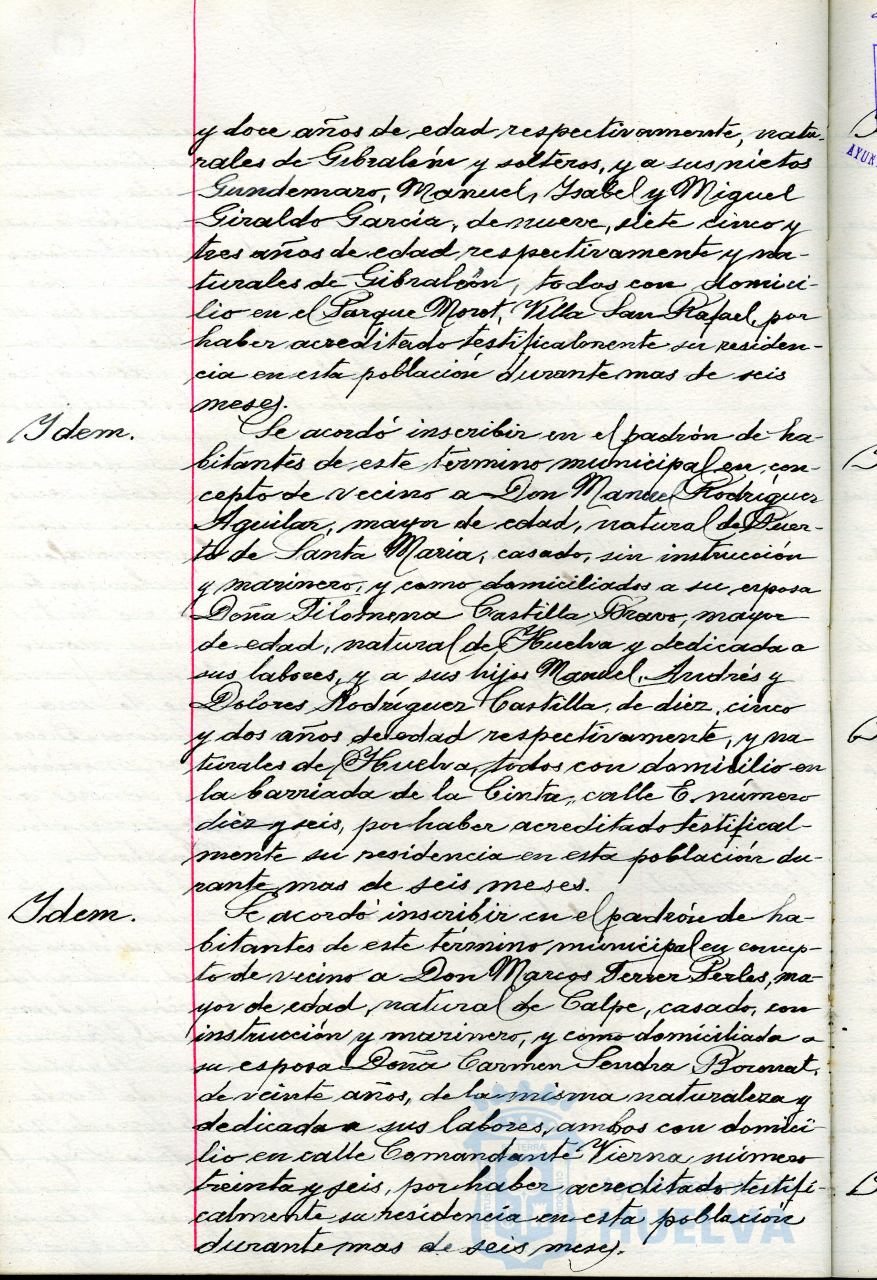 y doce años de edad respectivamente, natu-
rales de Gibraleón y solteros, y a sus nietos
Gundemaro, Manuel, Isabel y Miguel
Giraldo García, de nueve, siete cinco y
tres años de edad respectivamente y na-
turales de Gibraleón, todos con domici-
lio en el Parque Moret, Villa San Rafael, por
haber acreditado testificalmente su residen-
cia en esta población durante mas de seis
meses.
Idem.
Se acordó inscribir en el padrón de ha-
bitantes de este término municipal en con-
cepto de vecino a Don Manuel Rodríguez
Aguilar, mayor de edad, natural de Puer-
to de Santa María, casado, sin instrucción
y marinero, y como domiciliados a su esposa
Doña Filomena Castilla Bravo, mayor
de edad, natural de Huelva y dedicada a
sus labores, y a sus hijos Manuel, Andrés y
Dolores Rodríguez Castilla, de diez, cinco
y dos años de edad respectivamente, y na-
turales de Huelva, todos con domicilio en
la barriada de la Cinta, calle E. número
diez y seis, por haber acreditado testifical-
mente su residencia en esta población du-
rante mas de seis meses.
Idem.
Se acordó inscribir en el padrón de ha-
bitantes de este término municipal en concep-
to de vecino a Don Marcos Ferrer Perles, ma-
yor de edad, natural de Calpe, casado, con
instrucción y marinero, y como domiciliada a
su esposa Doña Carmen Sendra Boronat,
de veinte años, de la misma naturaleza y
dedicada a sus labores, ambos con domici-
lio en calle Comandante Vierna número
treinta y seis, por haber acreditado testifi-
calmente su residencia en esta población
durante mas de seis meses.
HUELVA